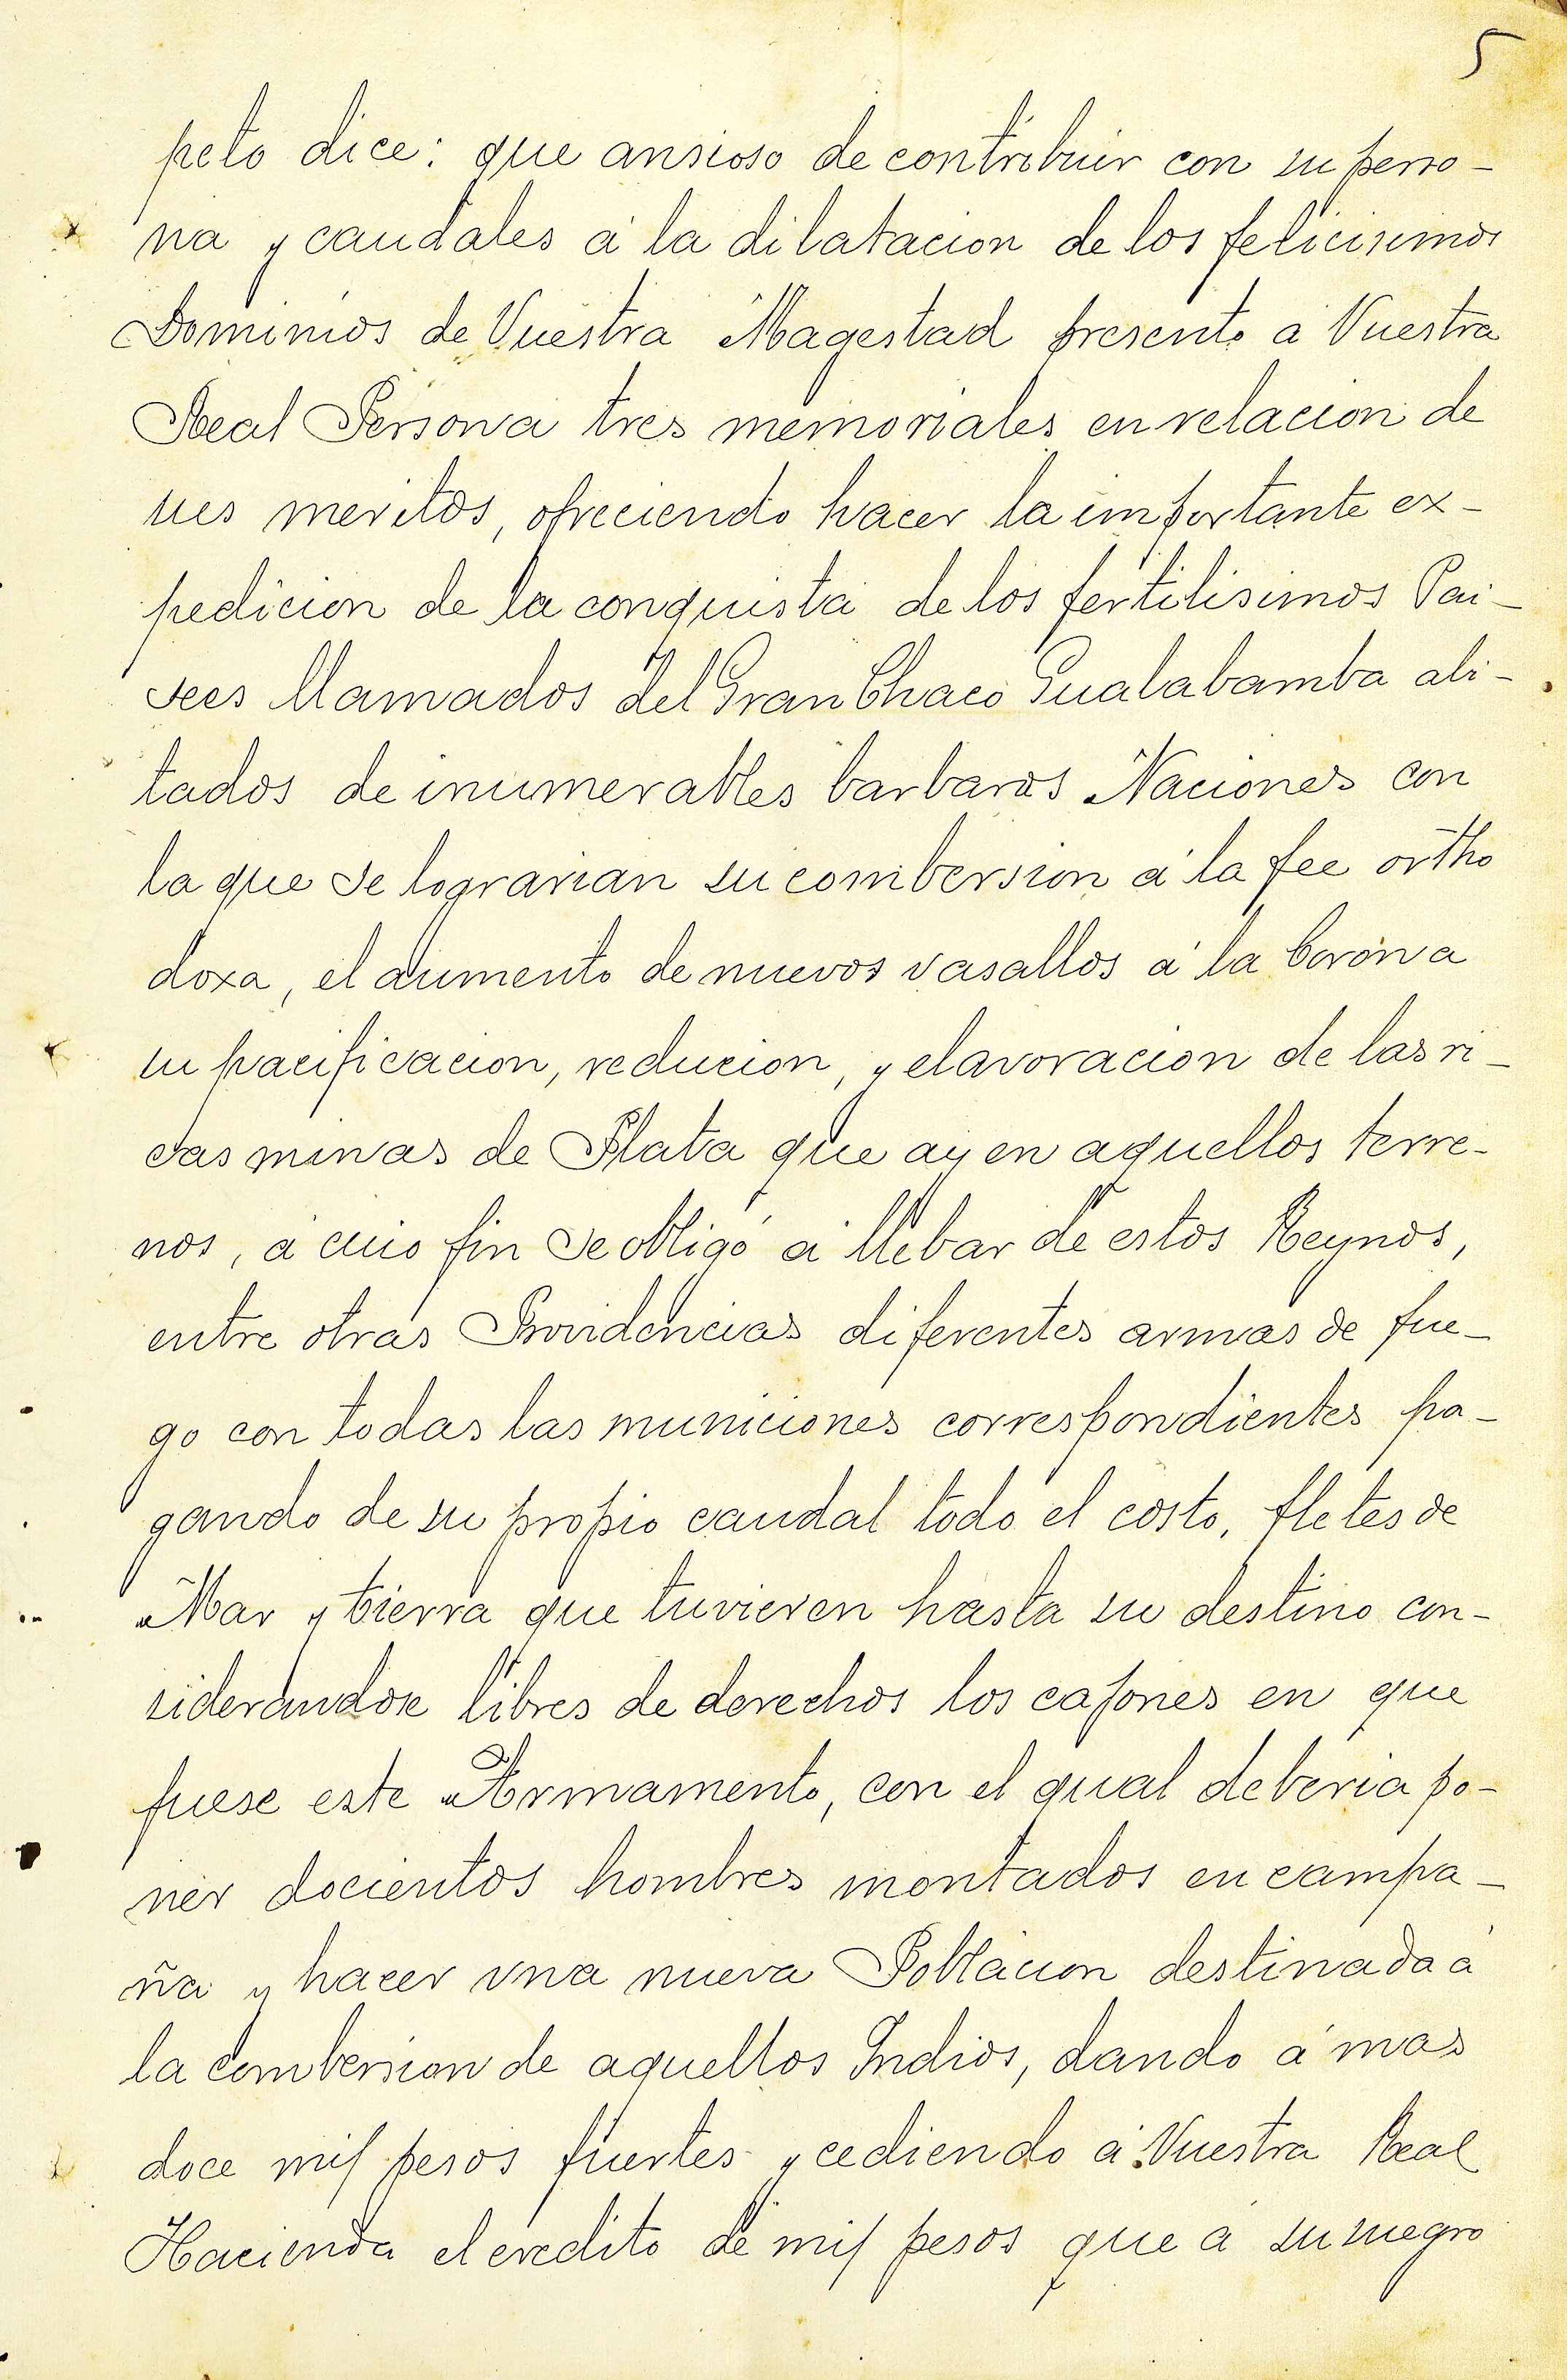 5
peto dice: que ansioso de contribuir con su perso-
na y caudales á la dilatacion de los felicisimos
Dominios de Vuestra Magestad presento a Vuestra
Real Persona tres memoriales en relacion de
sus meritos, ofreciendo hacer la importante ex-
pedicion de la conquista de los fertilisimos Pai-
sees llamados del Gran Chaco Gualabamba abi-
tados de inumerables barbaras Naciones con
la que se lograrian su combersion á la fee ortho
doxa, el aumento de nuevos vasallos á la Corona
su pacificacion, reducion, y elavoracion de las ri-
cas minas de Plata que ay en aquellos terre-
nos, á cuio fin se obligó á llebar de estos Reynos,
entre otras Providencias diferentes armas de fue-
go con todas las municiones correspondientes pa-
gando de su propio caudal todo el costo, fletes de
Mar y tierra que tuvieren hasta su destino con-
siderandose libres de derechos los cajones en que
fuese este Armamento, con el qual deberia po-
ner docientos hombres montados en campa-
ña y hacer vna nueva Poblacion destinada á
la combersion de aquellos Indios, dando á mas
doce mil pesos fuertes y cediendo á Vuestra Real
Hacienda el credito de mil pesos que á su suegro